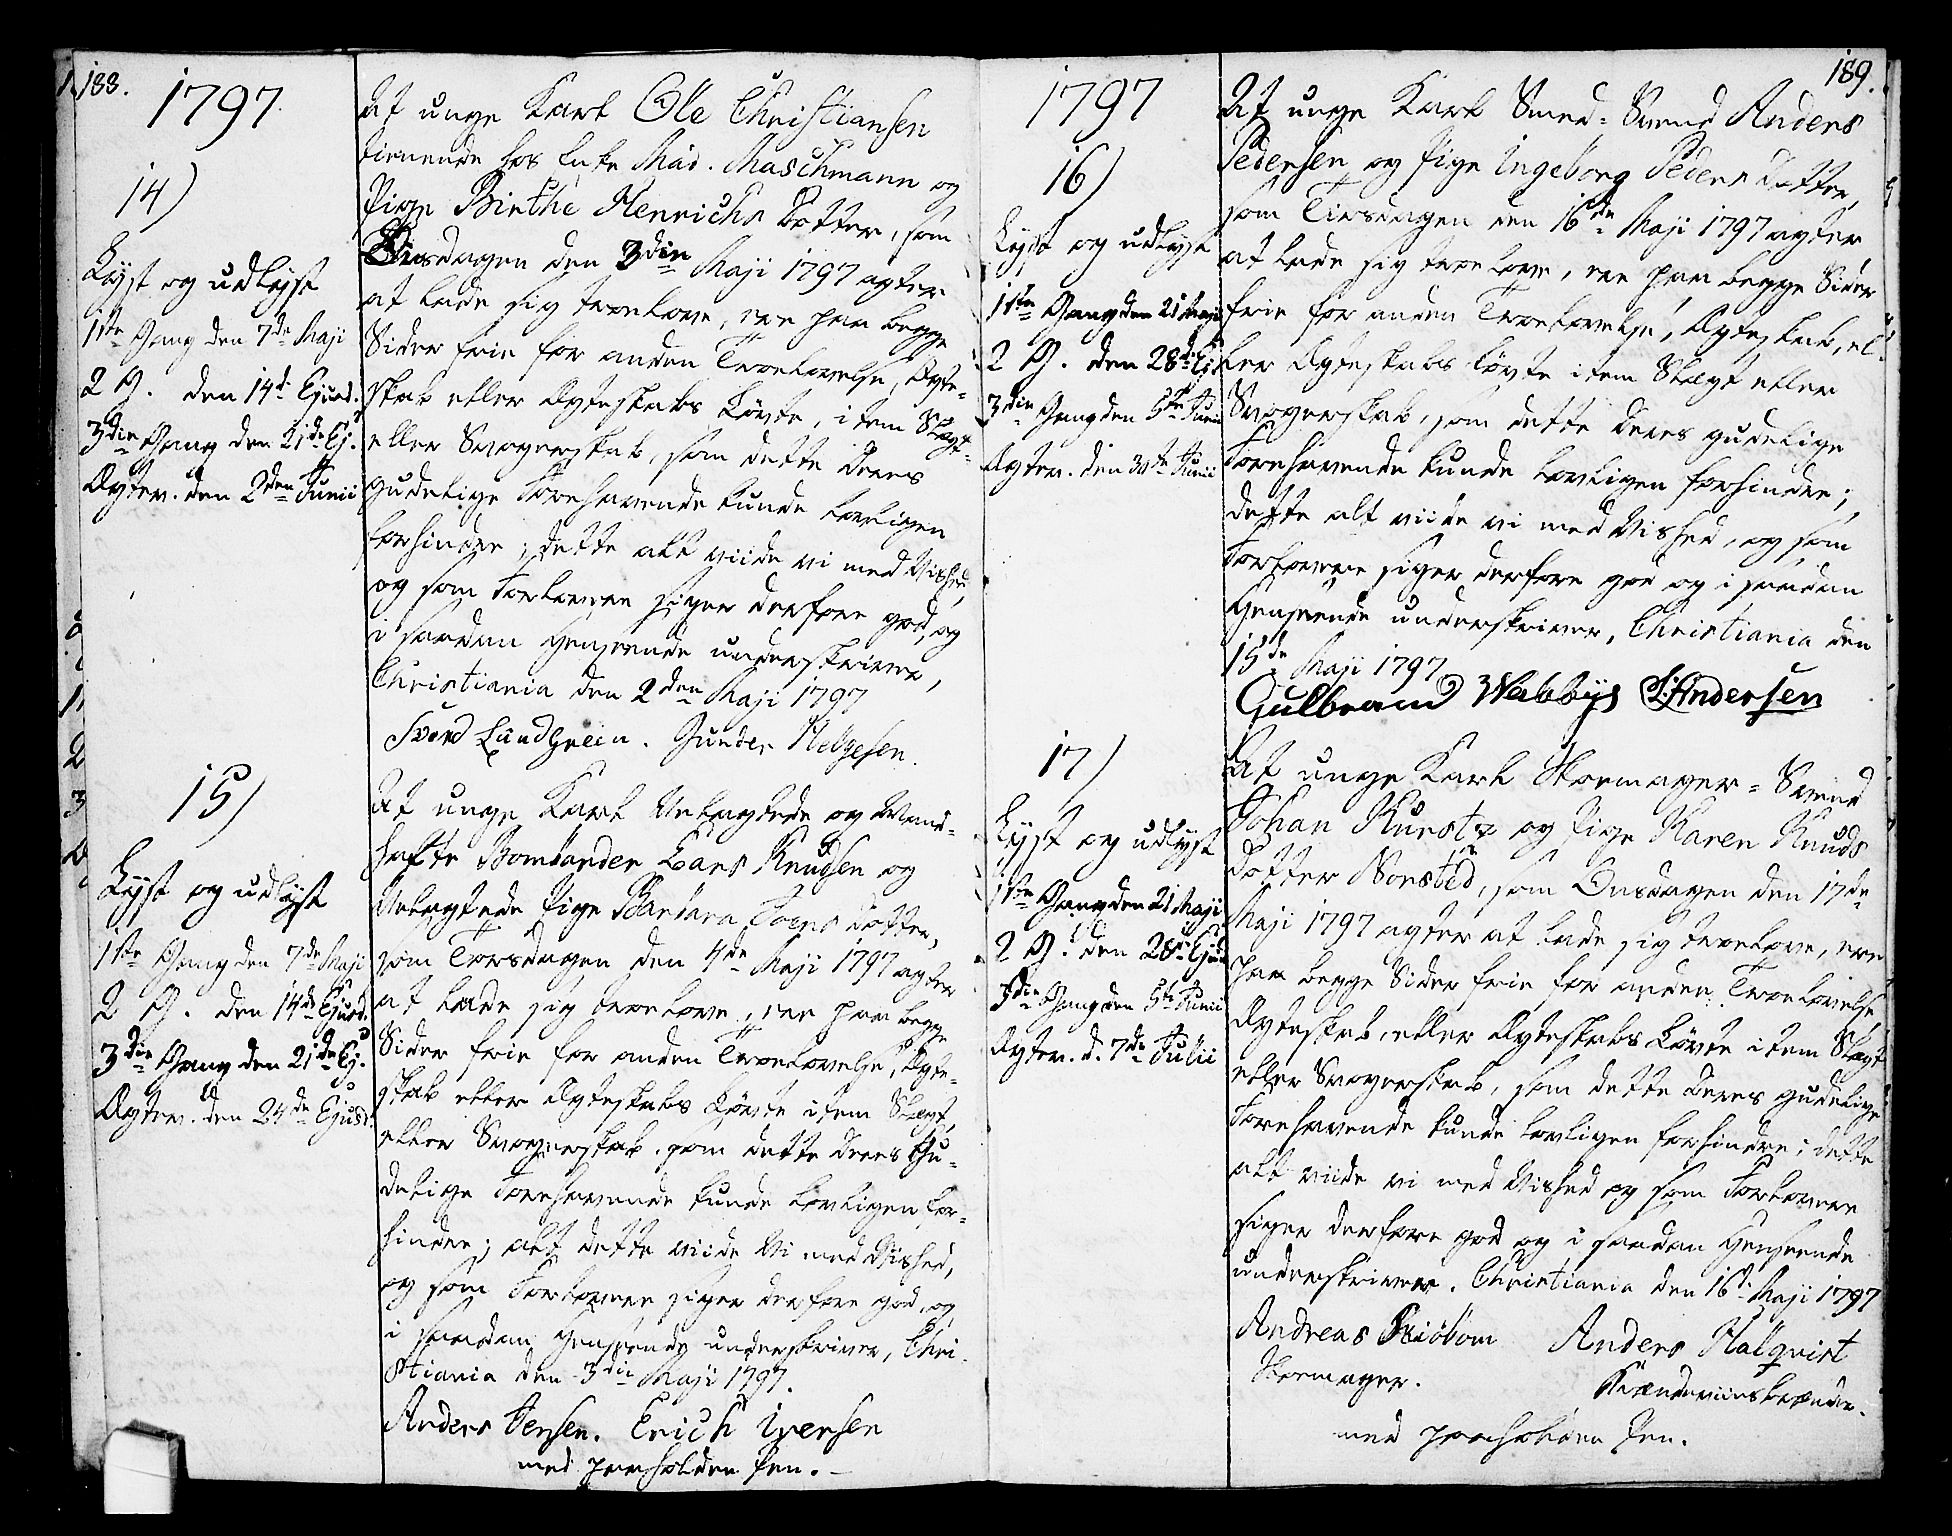 188.
1797
14)
Lyst og udlyst
1ste Gang den 7de Maji
2 G. den 14d. Ejusd.
3die Gang den 21de Ej.
Ægtev. den 2den Junii
At unge Karl Ole Christiansen
tienende hos Enke Mad. Maschmann og
Pige Birthe Henrichs Dotter, som
Tirsdagen den 3die Maji 1797 agter
at lade sig trolove, ere paa begge
Sider frie for anden Troelovelse, Ægte-
skab eller Ægteskabs Løvte, item Slægt-
eller Svogerskab, som dette deres
gudelige Forehavende kunde lovligen
forhindre; dette alt viide vi med Vished,
og som Forlovere siger derfore god, og
i saadan Henseende underskriver,
Christiania den 2den Maji 1797
Svend Lundgreen. Gunder Helgesen.
15)
Lyst og udlyst
1ste Gang den 7de Maji
2 G. den 14de Ejusd.
3die Gang den 21de Ej.
Ægtev. den 24de Ejusd.
At unge Karl Velagtede og Mand-
hafte Bombarder Lars Knudsen og
Velagtede Pige Barbara Joens Dotter,
som Torsdagen den 4de Maji 1797 agter
at lade sig troelove, ere paa begge
Sider frie for anden Troelovelse, Ægte-
skab eller Ægteskabs Løvte item Slægt
eller Svogerskab, som dette deres Gu-
delige Forehavende kunde lovligen for-
hindre; alt dette viide Vi med Vished,
og som Forlovere siger derfore god, og
i saadan Henseende underskriver, Chri-
stiania den 3die Maji 1797.
Anders Jensen. Erich Iversen
med paaholden Pen.
189.
1797
16)
Lyst og udlyst
1ste Gang den 21 Maji
2 G. den 28d. Ej.
3die Gang den 5te Junii
Ægtev. den 30te Junii
At unge Karl Smed-Svend Anders
Pedersen og Pige Ingeborg Peders Dotter,
som Tirsdagen den 16de Maji 1797 agter
at lade sig troelove, ere paa begge Sider
frie for anden Troelovelse, Ægteskab, el-
ler Ægteskabs Løvte item Slægt eller
Svogerskab, som dette deres gudelige
Forehavende kunde lovligen forhindre;
dette alt viide vi med Vished, og som
Forlovere siger derfore god og i saadan
Henseende underskriver, Christiania den
15de Maji 1797
Gulbrand Wabbys S: Andersen
17)
Lyst og udlyst
1ste Gang den 21 Maji
2 G. den 28d. Ejusd
3die Gang den 5te Junii
Ægtev. d. 7de Julii
At unge Karl Skomager-Svend
Johan Kunstz og Pige Karen Knuds
Dotter Norsted, som Onsdagen den 17de
Maji 1797 agter at lade sig troelove, ere
paa begge Sider frie for anden Troelovelse,
Ægteskab, eller Ægteskabs Løvte item Slægt
eller Svogerskab, som dette deres gudelige
Forehavende kunde lovligen forhindre; dette
alt viide vi med Vished og som Forlovere
siger derfore god og i saadan Henseende
underskriver. Christiania den 16d. Maji 1797
Andreas Skiöbom Anders Halqvist
Skomager. Brændeviinsbrænder.
med paaholden Pen.